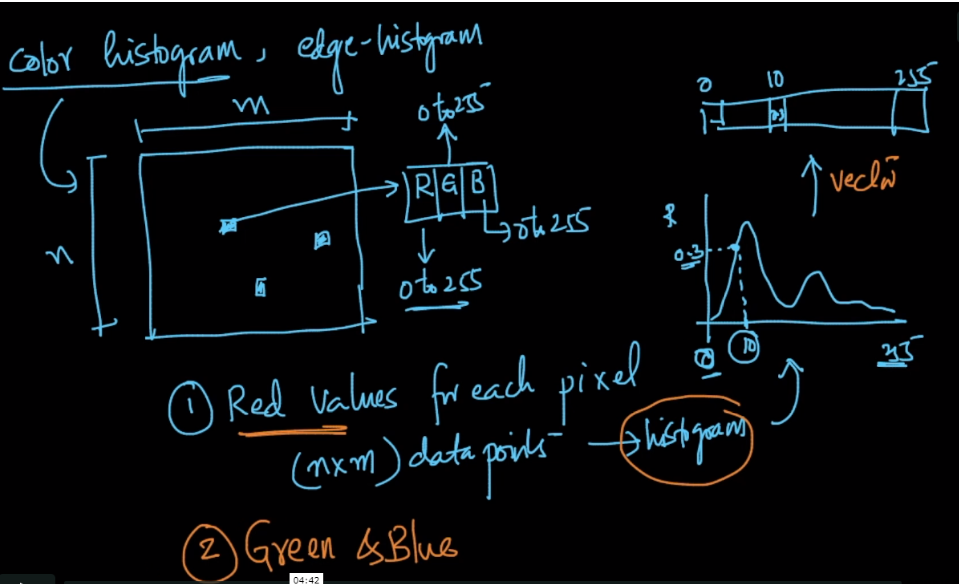 color histogram, edge-histgram
m
n
0 to 255
R G B
0 to 255
0 to 255
0 10 255
0.3
vector
R
0.3
0 10 255
1 Red values for each pixel
(n×m) data points → histogram
2 Green & Blue
04:42